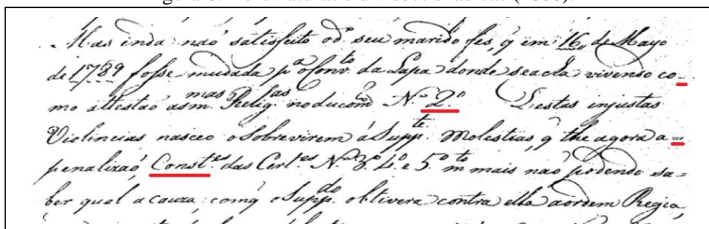 Mas inda naõ satisfeito od.º seu marido fes, q̃ em 16, de Mayo
de 1789 fosse mudada p.ª oConv.to da Lapa donde seacha vivendo co-
mo attestaõ asm.mas Relig.sas no docum.to N.º 2.º Destas injustas
Violencias nasceo oSobrevirem áSupp.te Molestias q̃ the agora a
penalizaõ, Const.es das Cert.es N.os 3.º 4.º e 5.º m.to mais naõ podendo sa-
ber qual a cauza: comq̃ oSupp.do obtivera contra ella aordem Regia,